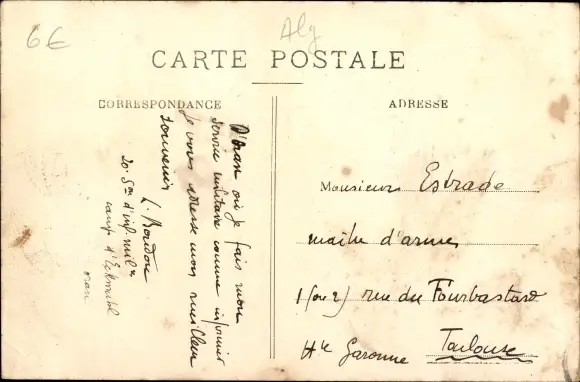 6€
Alg
CARTE POSTALE
CORRESPONDANCE
D'Oran où je fais mon
service militaire comme infirmier
je vous adresse mon meilleur
souvenir
L. Boudou
20e Son d'inf. milre
camp d'Eckmühl
oran
ADRESSE
Monsieur Estrade
maitre d'armes
1 (ou 2) rue du Fourbastard
Hte Garonne Toulouse